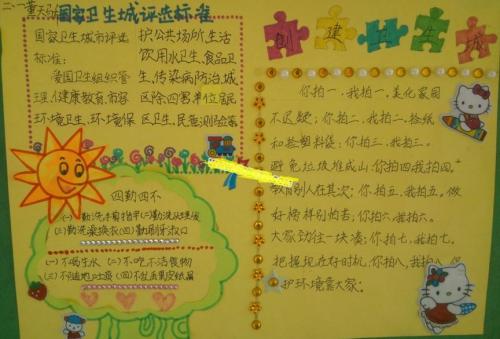 二、一董天
国家卫生城评选标准
国家卫生城市评选
标准:
爱国卫生组织管
理、健康教育、市容
环境卫生、环境保
护公共场所、生活
饮用水卫生、食品卫
生、传染病防治、城
区除四害单位居民
区卫生、民意测验等
四勤四不
(一)勤洗手剪指甲(二)勤洗头理发
(三)勤洗澡换衣(四)勤刷牙漱口
(一)不喝生水 (二)不吃不洁食物
(三)不随地吐痰(四)不乱丢果皮纸屑
创建卫生城
你拍一,我拍一,美化家园
不迟疑;你拍二,我拍二,捡纸
和捡塑料袋;你拍三,我拍三,
避免垃圾堆成山;你拍四我拍四,
教育别人在其次;你拍五,我拍五,做
好榜样别怕苦;你拍六,我拍六,
大家劲往一块凑;你拍七,我拍七,
把握现在好时机,你拍八,我拍八,保
护环境靠大家。